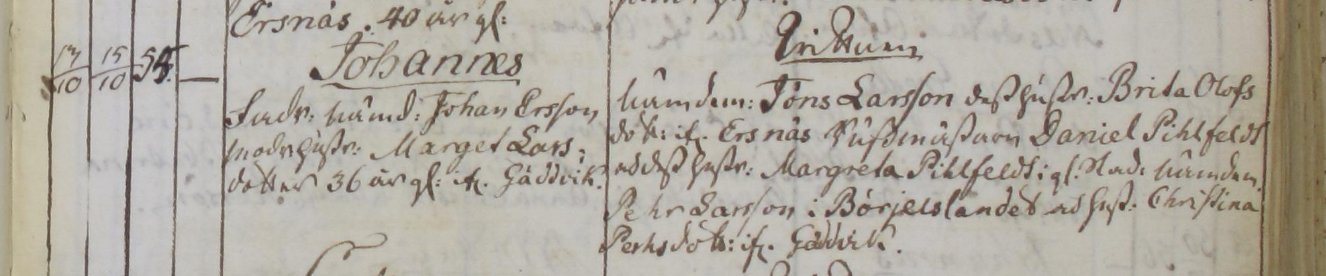 Ersnäs. 40 år gl:
13/10 15/10 54. —
Johannes
Fadr: Nämd: Johan Ersson
modr hustr: Marget Lars:
dotter 36 år gl: ifr. Gäddvik.
Vittnen
Nämdem: Jöns Larsson dess hustr: Brita Olofs
dott: if. Ersnäs Daniel Pihlfeldt
och dess hustr: Margreta Pihlfeldt: Nämdem.
Pehr Larsson i Börjelslandet och hust. Christina
Pehrs dott: ifr. Gäddvik.